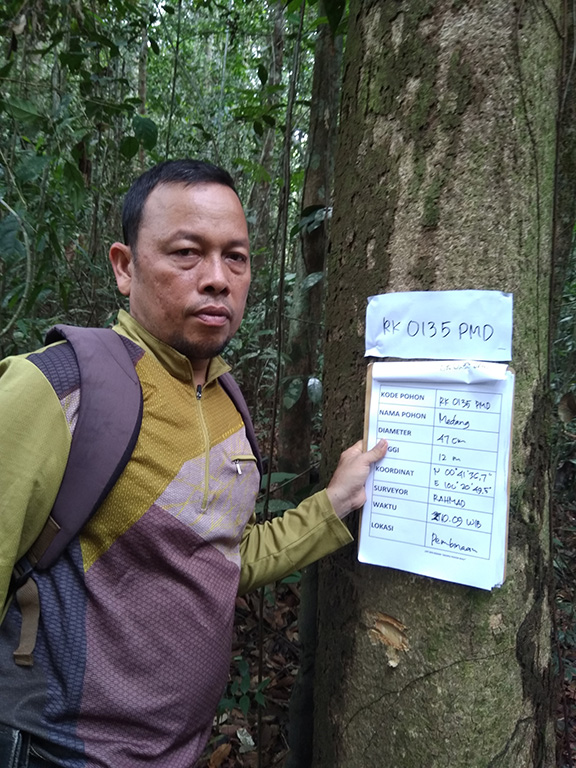 RK 0135 PMD
KODE POHON RK 0135 PMD
NAMA POHON Medang
DIAMETER 47 cm
GGI 12 m
KOORDINAT N 00°41'36,7"
E 101°20'49,5"
SURVEYOR RAHMAD
WAKTU 10.09 WIB
LOKASI Pembinaan